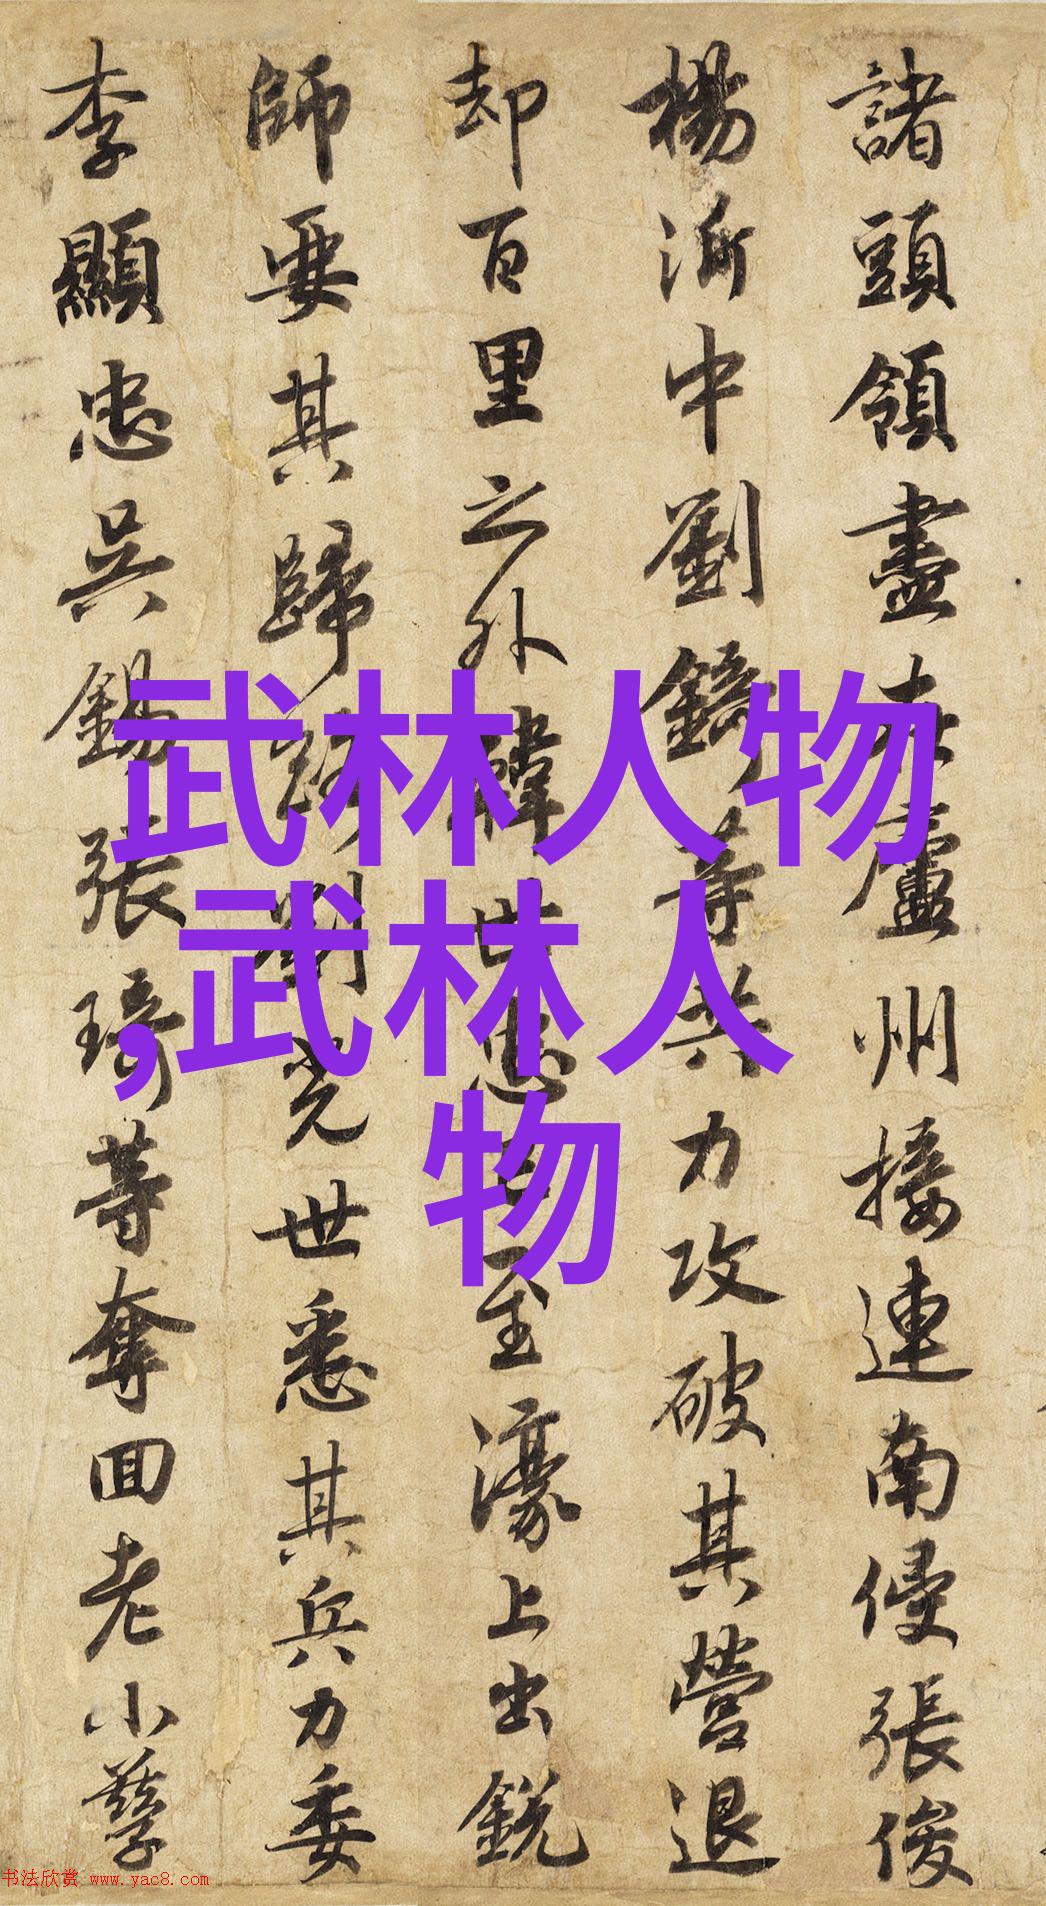 諸頭領盡在廬州接連南侵張俊
楊沂中劉錡等共力攻破其營退
却百里之外韓世忠已至濠上出銳
師要其歸路劉光世悉其兵力委
李顯忠吳錫張琦等奪回老小孳
武林人物
,武林人
物
书法欣赏 www.yac8.com